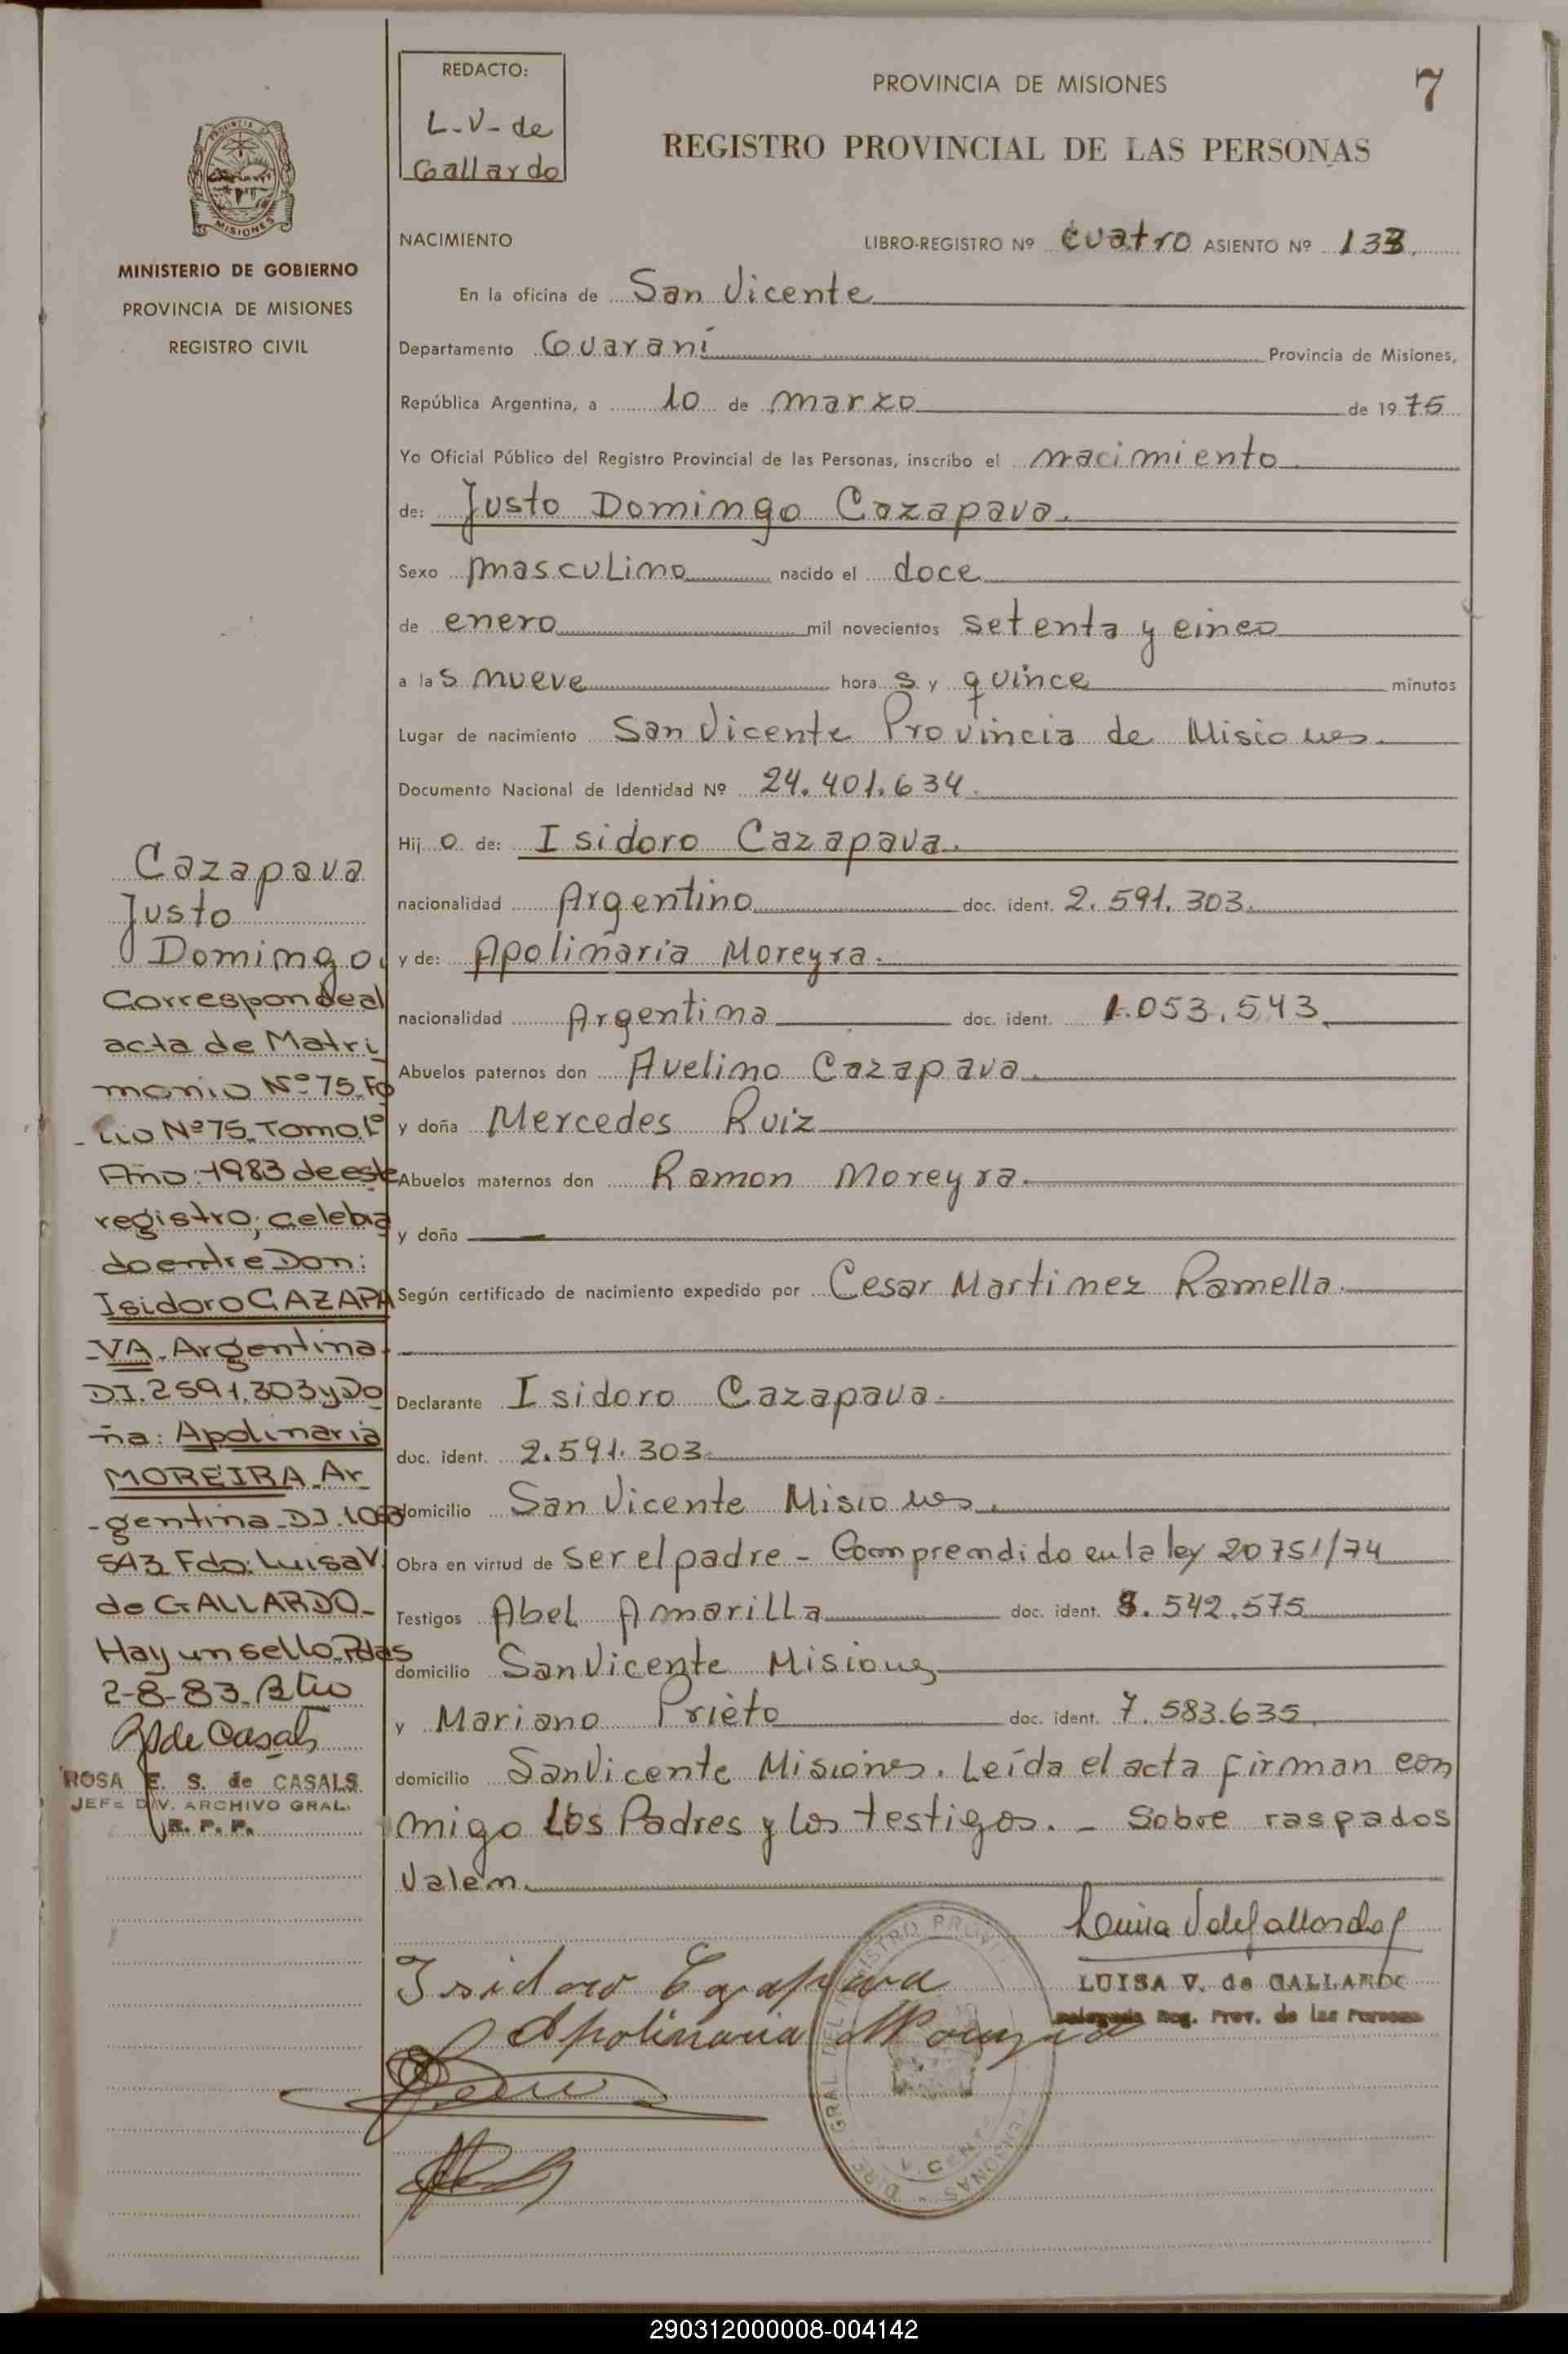 REDACTO:
L-V-de
Gallardo
PROVINCIA DE MISIONES
7
REGISTRO PROVINCIAL DE LAS PERSONAS
PROVINCIA DE
MISIONES
MINISTERIO DE GOBIERNO
PROVINCIA DE MISIONES
REGISTRO CIVIL
NACIMIENTO
LIBRO-REGISTRO Nº cuatro ASIENTO Nº 133.
En la oficina de San Vicente
Departamento Guaraní Provincia de Misiones,
República Argentina, a 10 de marzo de 1975
Yo Oficial Público del Registro Provincial de las Personas, inscribo el nacimiento
de: Justo Domingo Cazapava.
Sexo masculino nacido el doce
de enero mil novecientos setenta y cinco
a las nueve horas y quince minutos
Lugar de nacimiento San Vicente Provincia de Misiones.
Documento Nacional de Identidad Nº 24.401.634.
Hijo de: Isidoro Cazapava.
nacionalidad Argentino doc. ident. 2.591.303.
y de: Apolinaria Moreyra.
nacionalidad Argentina doc. ident. 1.053.543.
Abuelos paternos don Avelino Cazapava.
y doña Mercedes Ruiz
Abuelos maternos don Ramon Moreyra.
y doña —
Según certificado de nacimiento expedido por Cesar Martinez Ramella.
Declarante Isidoro Cazapava.
doc. ident. 2.591.303
domicilio San Vicente Misiones.
Obra en virtud de ser el padre - Comprendido en la ley 20751/74
Testigos Abel Amarilla doc. ident. 8.542.575
domicilio San Vicente Misiones
y Mariano Prieto doc. ident. 7.583.635.
domicilio San Vicente Misiones. Leída el acta firman con
migo los Padres y los testigos. - Sobre raspados
Valen.
Cazapava
Justo
Domingo.
Corresponde al
acta de Matri
monio Nº 75. Fo
lio Nº 75. Tomo 1º
Año: 1983 de este
registro; celebra
do entre Don:
Isidoro CAZAPA
-VA. Argentina
DI. 2591.303 y Do
-ña: Apolinaria
MOREIRA. Ar
-gentina. DI. 1.053
543 Fdo: Luisa V.
de GALLARDO-
Hay un sello. Pdas
2-8-83.
de Casals
ROSA E. S. de CASALS
JEFE DIV. ARCHIVO GRAL.
R. P. P.
Luisa V de Gallardo
LUISA V. de GALLARDO
Delegada Reg. Prov. de las Personas
Isidoro Cazapava
Apolinaria Moreyra
290312000008-004142